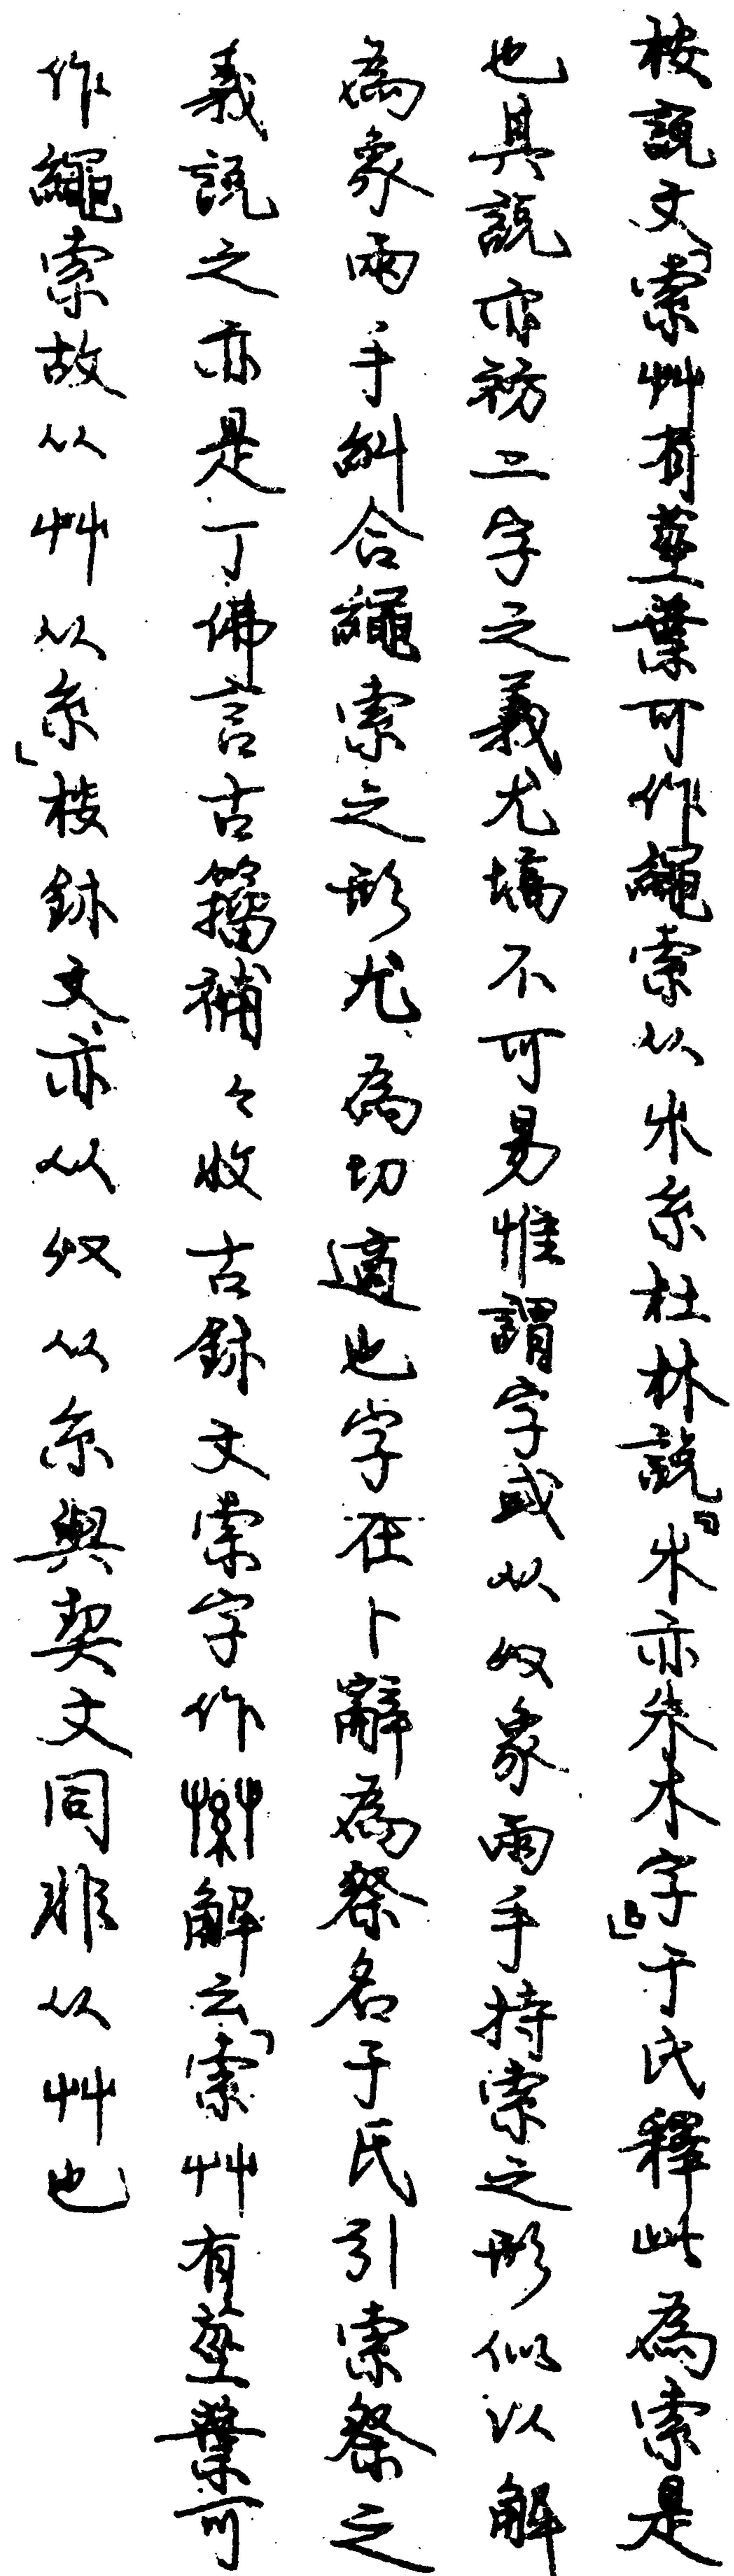 按說文「索艸有莖葉可作繩索从𣎵糸杜林說『𣎵亦朱木字』」于氏釋此為索是
也其說亦祊二字之義尤塙不可易惟謂字或从𠬞象兩手持索之形似以解
為象兩手糾合繩索之形尤為切適也字在卜辭為祭名于氏引索祭之
義說之亦是丁佛言古籀補々收古鉥文索字作解云「索艸有莖葉可
作繩索故从艸从糸」按鉥文亦从𠬞从糸與契文同非从艸也